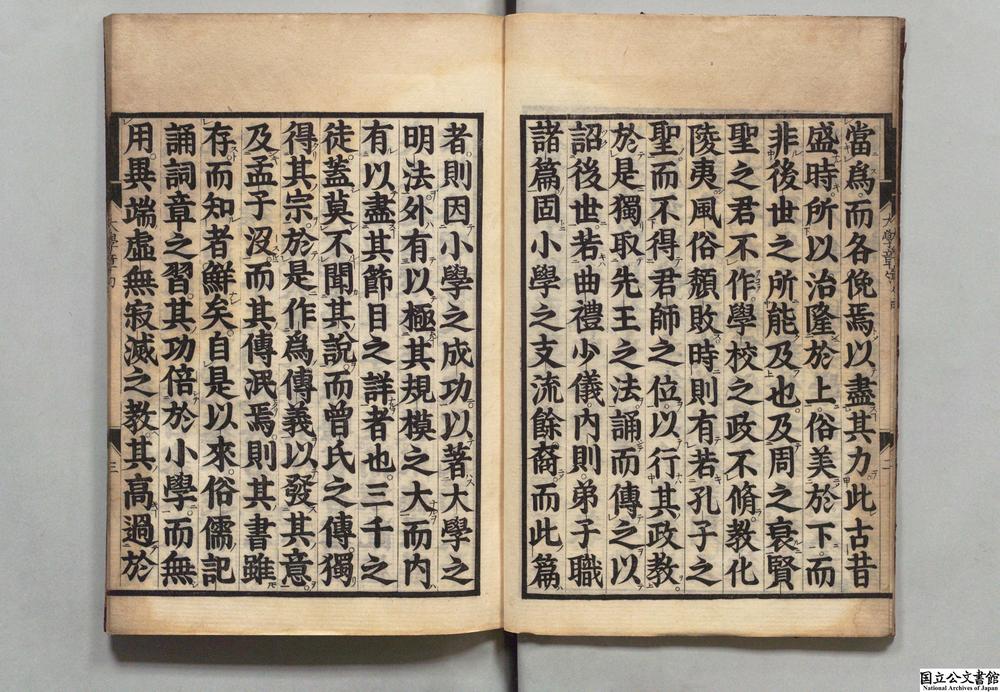 當爲而各俛焉以盡其力此古昔
盛時所以治隆於上俗美於下而
非後世之所能及也及周之衰賢
聖之君不作學校之政不脩教化
陵夷風俗頽敗時則有若孔子之
聖而不得君師之位以行其政教
於是獨取先王之法誦而傳之以
詔後世若曲禮少儀內則弟子職
諸篇固小學之支流餘裔而此篇
者則因小學之成功以著大學之
明法外有以極其規模之大而內
有以盡其節目之詳者也三千之
徒蓋莫不聞其說而曾氏之傳獨
得其宗於是作爲傳義以發其意
及孟子沒而其傳泯焉則其書雖
存而知者鮮矣自是以來俗儒記
誦詞章之習其功倍於小學而無
用異端虛無寂滅之教其高過於
三
国立公文書館
National Archives of Japan